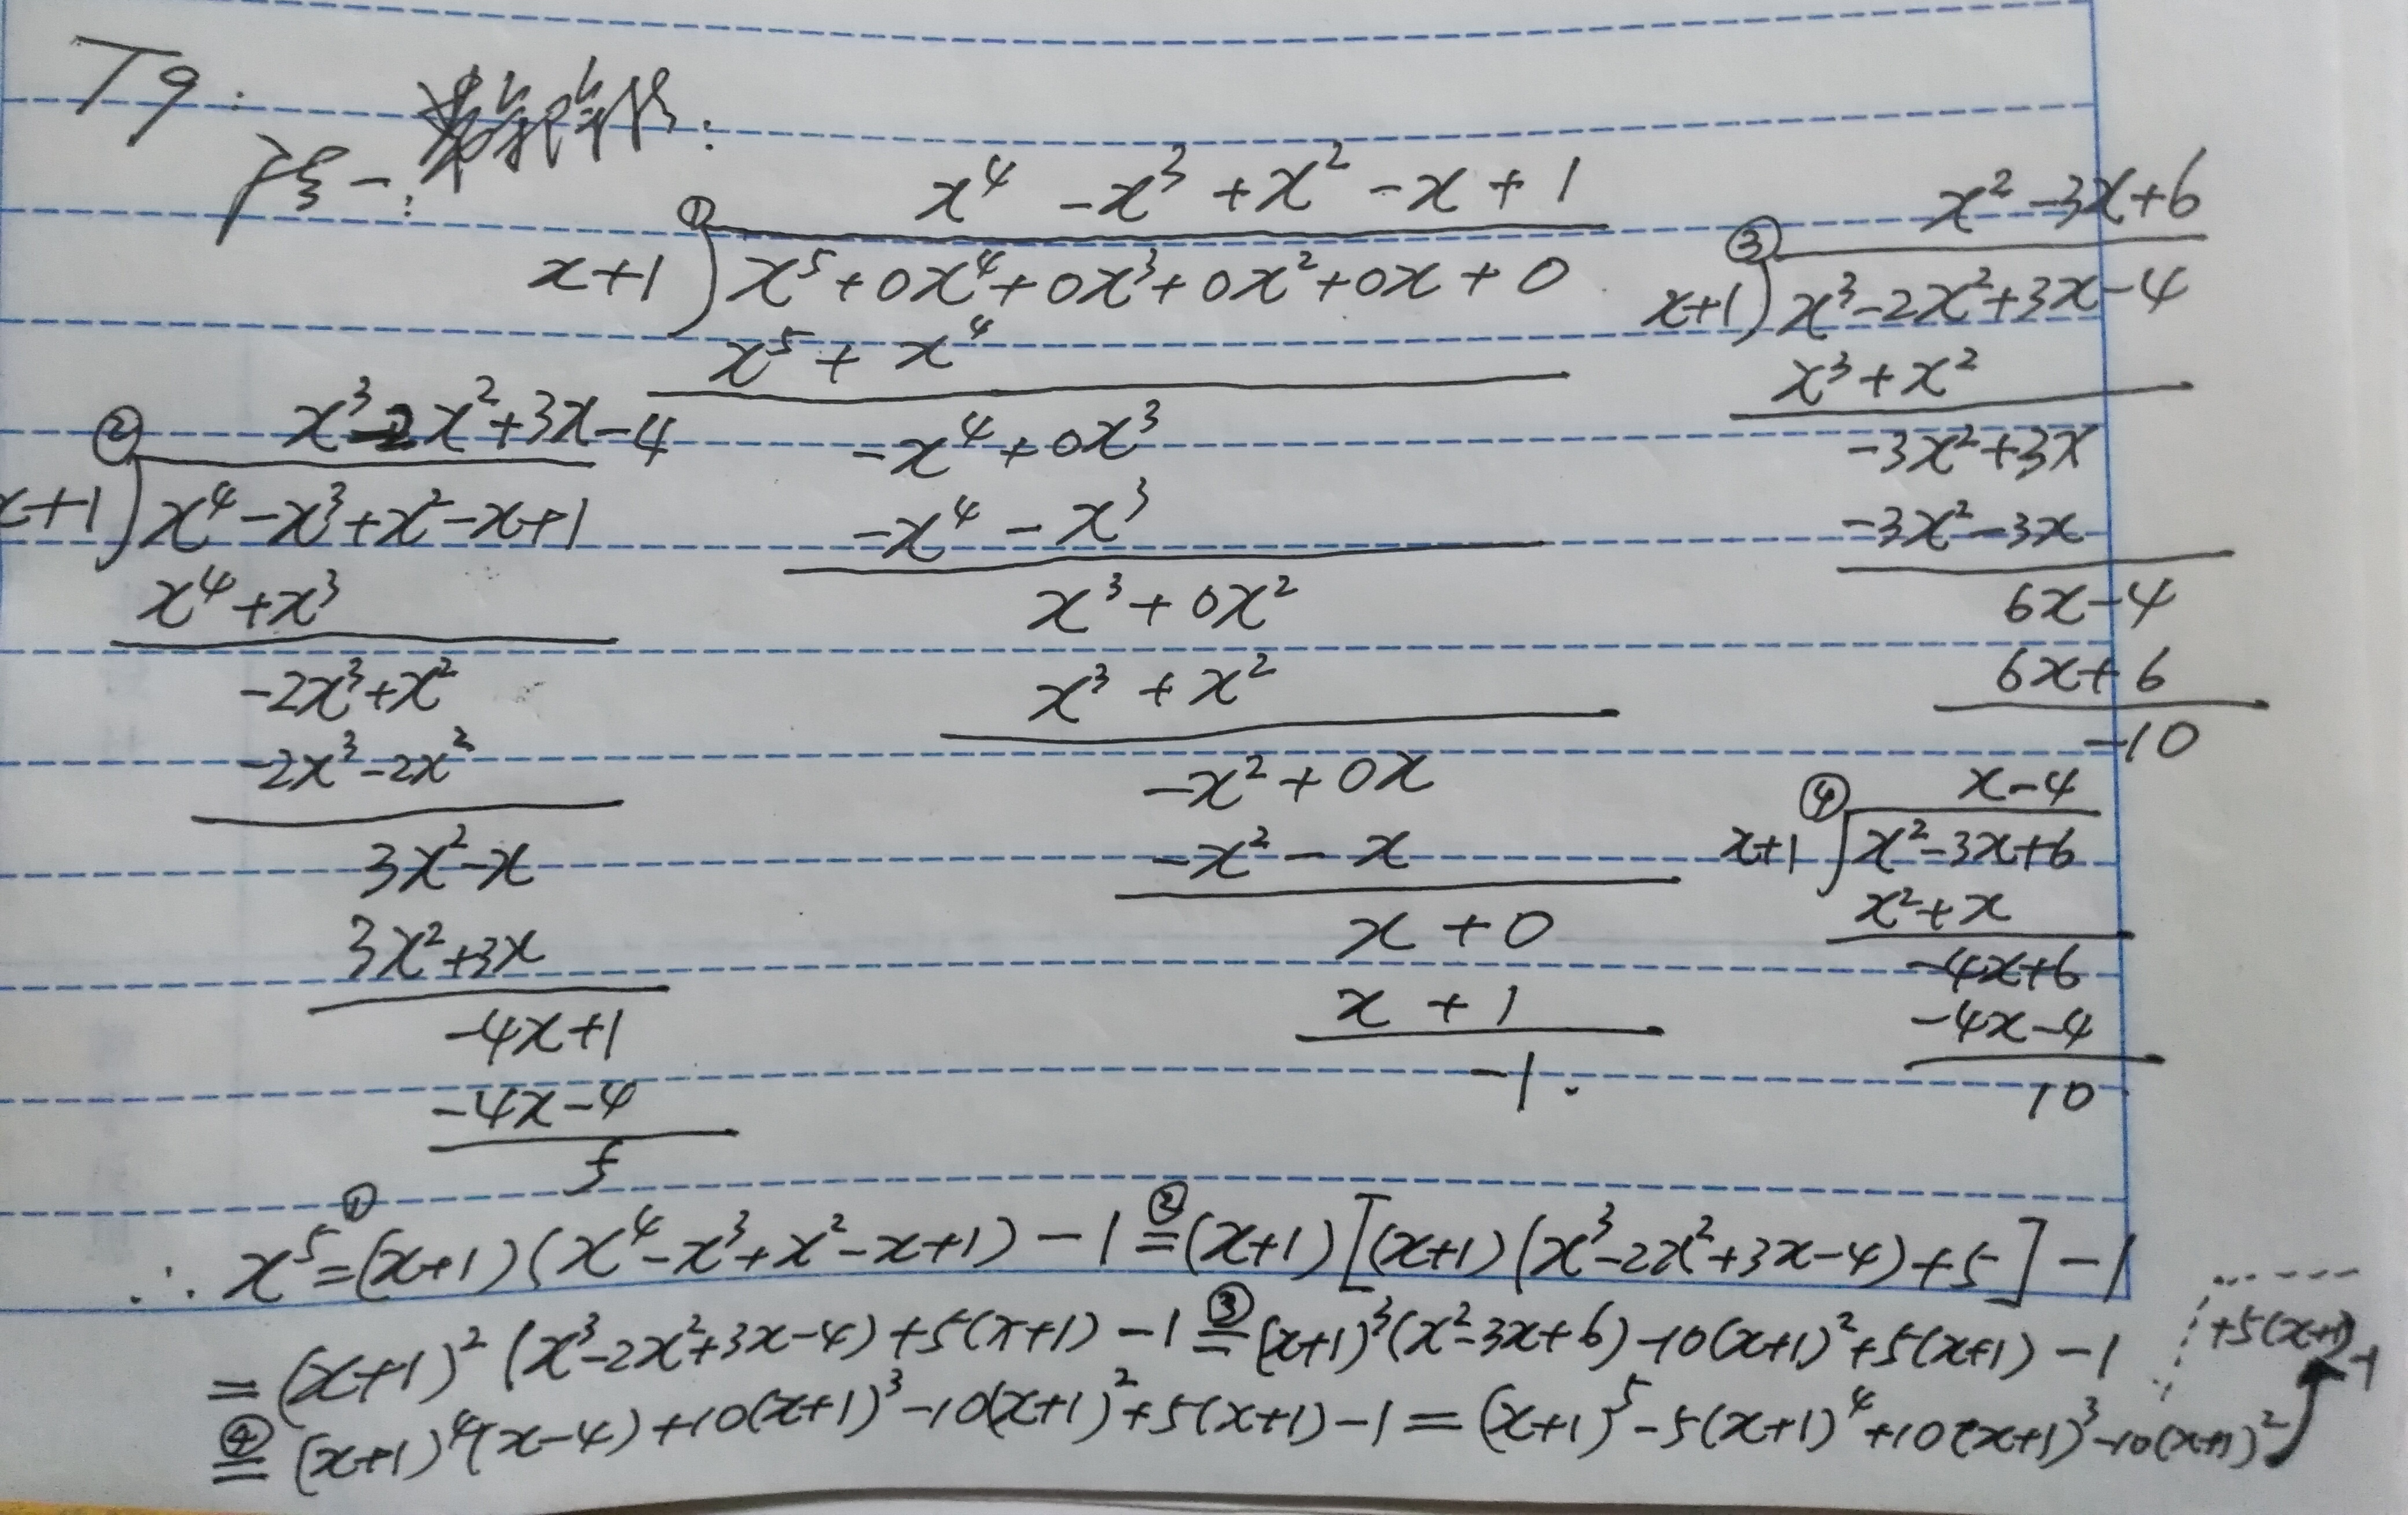 T9:
法一:
①
x⁴ - x³ + x² - x + 1
x+1 ) x⁵ + 0x⁴ + 0x³ + 0x² + 0x + 0
x⁵ + x⁴
-x⁴ + 0x³
-x⁴ - x³
x³ + 0x²
x³ + x²
-x² + 0x
-x² - x
x + 0
x + 1
-1.
②
x³ - 2x² + 3x - 4
x+1 ) x⁴ - x³ + x² - x + 1
x⁴ + x³
-2x³ + x²
-2x³ - 2x²
3x² - x
3x² + 3x
-4x + 1
-4x - 4
5
③
x² - 3x + 6
x+1 ) x³ - 2x² + 3x - 4
x³ + x²
-3x² + 3x
-3x² - 3x
6x - 4
6x + 6
-10
④
x - 4
x+1 ) x² - 3x + 6
x² + x
-4x + 6
-4x - 4
10
∴ x⁵ ①= (x+1)(x⁴ - x³ + x² - x + 1) - 1 ②= (x+1)[(x+1)(x³ - 2x² + 3x - 4) + 5] - 1
= (x+1)²(x³ - 2x² + 3x - 4) + 5(x+1) - 1 ③= (x+1)³(x² - 3x + 6) - 10(x+1)² + 5(x+1) - 1
④= (x+1)⁴(x-4) + 10(x+1)³ - 10(x+1)² + 5(x+1) - 1 = (x+1)⁵ - 5(x+1)⁴ + 10(x+1)³ - 10(x+1)²
+5(x+1) - 1